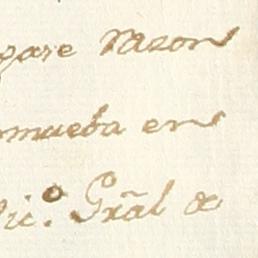 gare razon
omueba en
Vic.º Grãl de